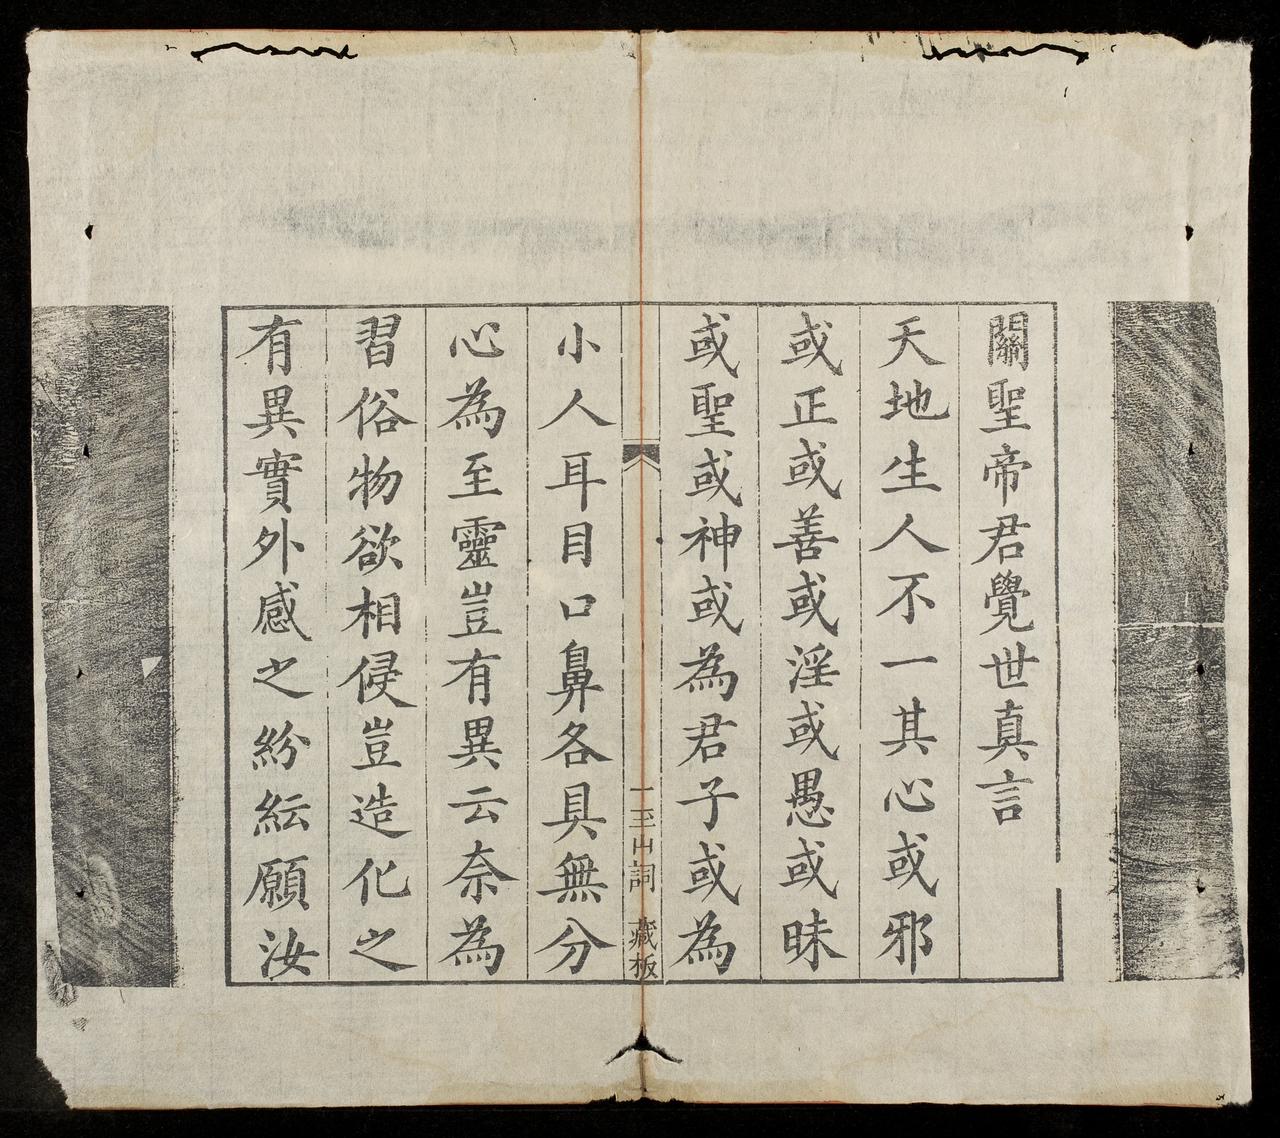 關聖帝君覺世真言
天地生人不一其心或邪
或正或善或淫或愚或昧
或聖或神或為君子或為
小人耳目口鼻各具無分
心為至靈豈有異云奈為
習俗物欲相侵豈造化之
有異實外感之紛紜願汝
藏板